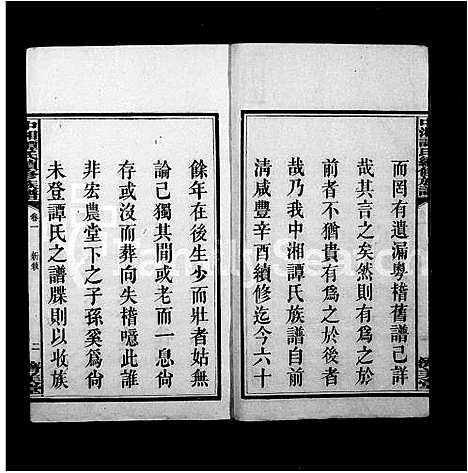 而罔有遺漏粵稽舊譜已詳
哉其言之矣然則有為之於
前者不猶貴有為之於後者
哉乃我中湘譚氏族譜自前
清咸豐辛酉續修迄今六十
餘年在後生少而壯者姑無
論己獨其間或老而一息尙
存或沒而葬向失稽噫此誰
非宏農堂下之子孫奚爲尙
未登譚氏之譜牒則以收族
中湘譚氏續修族譜
卷一
新敘
二
FamilySearch